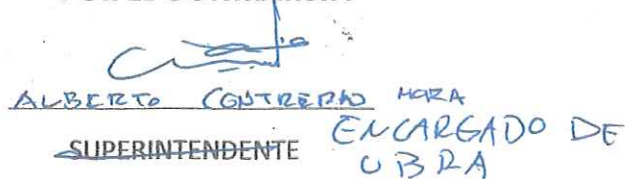 ALBERTO CONTRERAS MORA
SUPERINTENDENTE ENCARGADO DE
OBRA